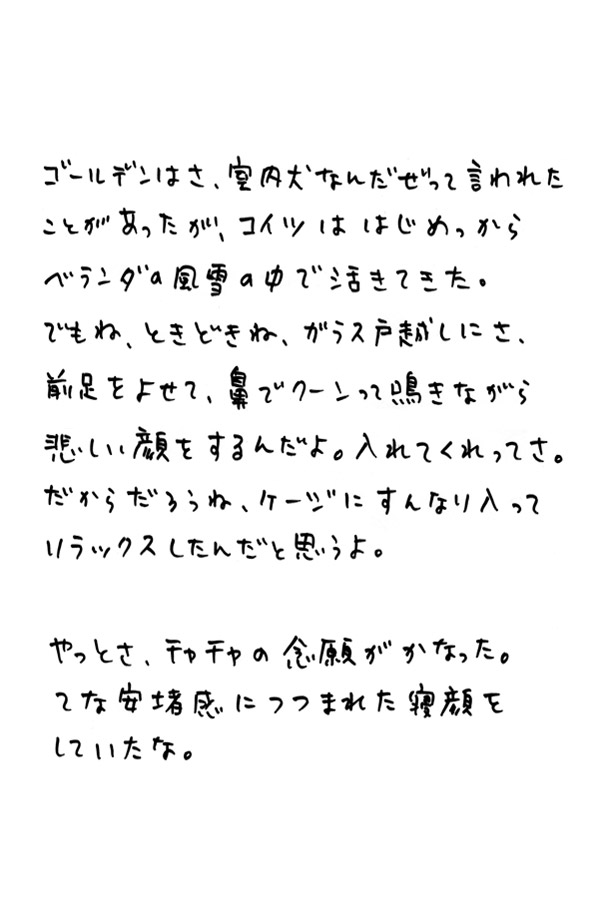 ゴールデンはさ、室内犬なんだぜって言われた
ことがあったが、コイツは はじめっから
ベランダの風雪の中で活きてきた。
でもね、ときどきね、ガラス戸越しにさ、
前足をよせて、鼻でクーンって鳴きながら
悲しい顔をするんだよ。入れてくれってさ。
だからだろうね、ケージにすんなり入って
リラックスしたんだと思うよ。
やっとさ、チャチャの念願がかなった。
てな安堵感につつまれた寝顔を
していたな。